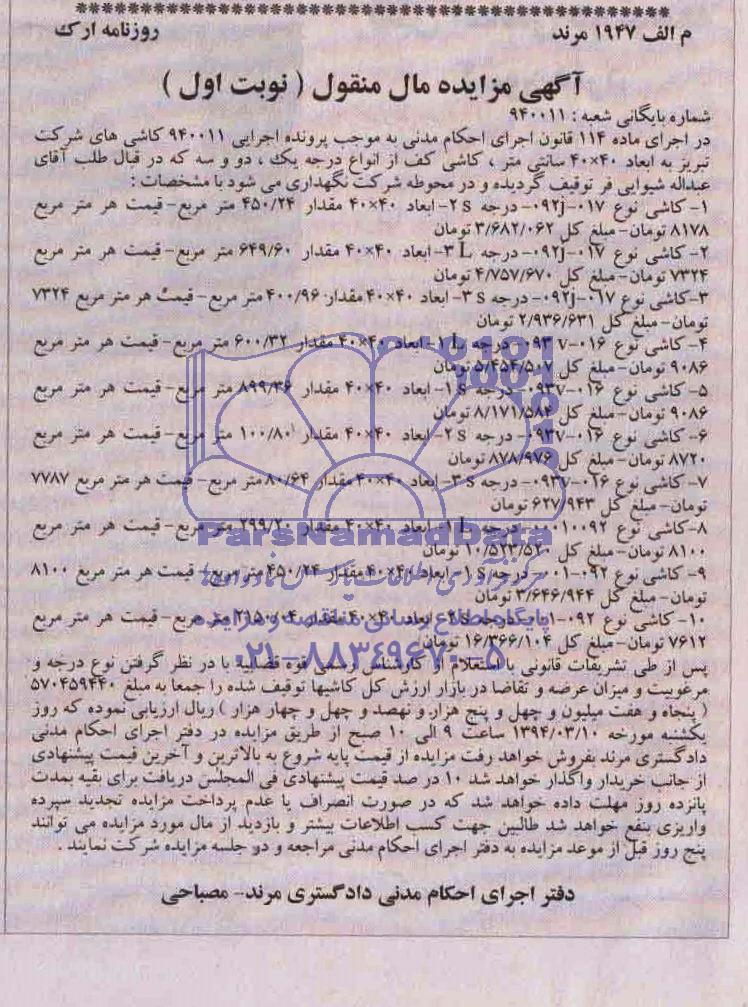 م الف ۱۹۴۷ مرند
روزنامه ارک
آگهی مزایده مال منقول ( نوبت اول )
شماره بایگانی شعبه : ۹۴۰۰۱۱
در اجرای ماده ۱۱۴ قانون اجرای احکام مدنی به موجب پرونده اجرایی ۹۴۰۰۱۱ کاشی های شرکت
تبریز به ابعاد ۴۰×۴۰ سانتی متر ، کاشی کف از انواع درجه یک ، دو و سه که در قبال طلب آقای
عبداله شیوایی فر توقیف گردیده و در محوطه شرکت نگهداری می شود با مشخصات :
۱- کاشی نوع ۰۱۷-۰۹۲j- درجه s ۲- ابعاد ۴۰×۴۰ مقدار ۴۵۰/۲۴ متر مربع- قیمت هر متر مربع
۸۱۷۸ تومان- مبلغ کل ۳/۶۸۲/۰۶۲ تومان
۲- کاشی نوع ۰۱۷-۰۹۲j- درجه L ۳- ابعاد ۴۰×۴۰ مقدار ۶۴۹/۶۰ متر مربع- قیمت هر متر مربع
۷۳۲۴ تومان- مبلغ کل ۴/۷۵۷/۶۷۰ تومان
۳-کاشی نوع ۰۱۷-۰۹۲j- درجه s ۳- ابعاد ۴۰×۴۰ مقدار ۴۰۰/۹۶ متر مربع- قیمت هر متر مربع ۷۳۲۴
تومان- مبلغ کل ۲/۹۳۶/۶۳۱ تومان
۴- کاشی نوع ۰۱۶-۰۹۳۷- درجه L ۱- ابعاد ۴۰×۴۰ مقدار ۶۰۰/۳۲ متر مربع- قیمت هر متر مربع
۹۰۸۶ تومان- مبلغ کل ۵/۴۵۴/۵۰۷ تومان
۵- کاشی نوع ۰۱۶-۰۹۳۷- درجه s ۱- ابعاد ۴۰×۴۰ مقدار ۸۹۹/۳۶ متر مربع- قیمت هر متر مربع
۹۰۸۶ تومان- مبلغ کل ۸/۱۷۱/۵۸۴ تومان
۶- کاشی نوع ۰۱۶-۰۹۳۷- درجه s ۲- ابعاد ۴۰×۴۰ مقدار ۱۰۰/۸۰ متر مربع- قیمت هر متر مربع
۸۷۲۰ تومان- مبلغ کل ۸۷۸/۹۷۶ تومان
۷- کاشی نوع ۰۱۶-۰۹۳۷- درجه s ۳- ابعاد ۴۰×۴۰ مقدار ۸۰/۶۴ متر مربع- قیمت هر متر مربع ۷۷۸۷
تومان- مبلغ کل ۶۲۷/۹۴۳ تومان
۸-کاشی نوع ۰۰۱۰۰۹۲- درجه L ۱- ابعاد ۴۰×۴۰ مقدار ۲۹۹/۲۰ متر مربع- قیمت هر متر مربع
۸۱۰۰ تومان- مبلغ کل ۱۰/۵۲۳/۵۲۰ تومان
۹- کاشی نوع ۰۹۲-۰۰۱- درجه s ۱- ابعاد ۴۰×۴۰ مقدار ۴۵۰/۲۴ متر مربع- قیمت هر متر مربع ۸۱۰۰
تومان- مبلغ کل ۳/۶۴۶/۹۴۴ تومان
۱۰- کاشی نوع ۰۹۲-۰۰۱- درجه ۲s- ابعاد ۴۰×۴۰ مقدار ۲۱۵۰/۰۴ متر مربع- قیمت هر متر مربع
۷۶۱۲ تومان- مبلغ کل ۱۶/۳۶۶/۱۰۴ تومان
پس از طی تشریفات قانونی با استعلام از کارشناس رسمی قوه قضاییه با در نظر گرفتن نوع درجه و
مرغوبیت و میزان عرضه و تقاضا در بازار ارزش کل کاشیها توقیف شده را جمعا به مبلغ ۵۷۰۴۵۹۴۴۰
( پنجاه و هفت میلیون و چهل و پنج هزار و نهصد و چهل و چهار هزار ) ریال ارزیابی نموده که روز
یکشنبه مورخه ۱۳۹۴/۰۳/۱۰ ساعت ۹ الی ۱۰ صبح از طریق مزایده در دفتر اجرای احکام مدنی
دادگستری مرند بفروش خواهد رفت مزایده از قیمت پایه شروع به بالاترین و آخرین قیمت پیشنهادی
از جانب خریدار واگذار خواهد شد ۱۰ در صد قیمت پیشنهادی فی المجلس دریافت برای بقیه بمدت
پانزده روز مهلت داده خواهد شد که در صورت انصراف یا عدم پرداخت مزایده تجدید سپرده
واریزی بنفع خواهد شد طالبین جهت کسب اطلاعات بیشتر و بازدید از مال مورد مزایده می توانند
پنج روز قبل از موعد مزایده به دفتر اجرای احکام مدنی مراجعه و در جلسه مزایده شرکت نمایند .
دفتر اجرای احکام مدنی دادگستری مرند- مصباحی
ParsNamadData
پایگاه اطلاع رسانی مناقصه و مزایده
۰۲۱-۸۸۳۴۹۶۷۰-۵